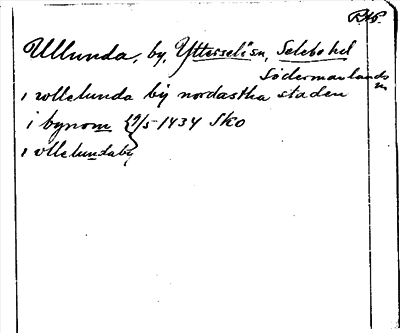 RAp.
Ullunda, by, Ytterselö sn, Selebo hd
Södermanlands
ln
i wllelunda by nordastha staden
i bynom } 9/5 1434 Sko
i vllelundaby